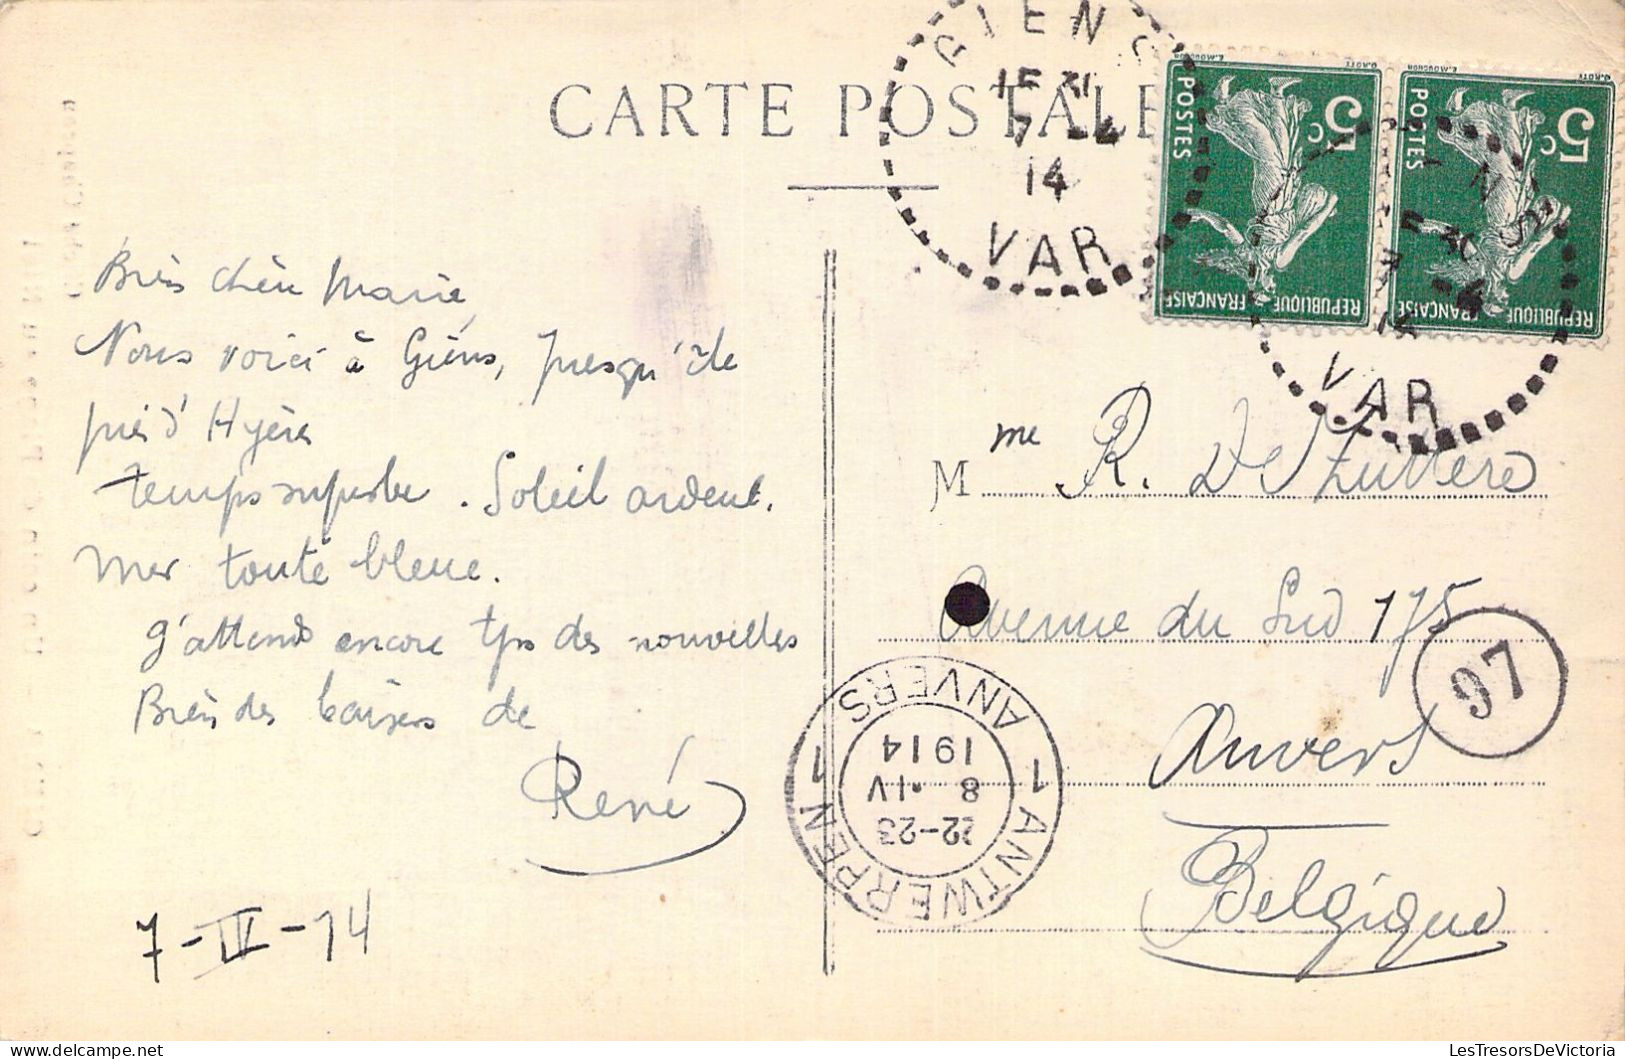 CARTE POSTALE
GIENS
15 30
7 -4
14
VAR
POSTES
5c
REPUBLIQUE FRANÇAISE
POSTES
5c
REPUBLIQUE FRANÇAISE
VAR
Bien chère Marie,
Nous voici à Giens, presqu'île
près d'Hyères
temps superbe. Soleil ardent.
Mer toute bleue.
J'attends encore tjrs des nouvelles
Bien des baisers de
René
7-IV-14
Mme R. De
Avenue du Sud 175
Anvers
Belgique
97
1 ANTWERPEN 1
22-23
8 ·IV
1914
ANVERS
LesTresorsDeVictoria